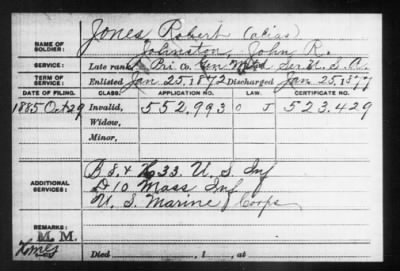 Jones Robert (alias)
NAME OF SOLDIER: Johnston, John R.
SERVICE: Late rank, Pri Co. Gen Mtd Ser U.S.A.
TERM OF SERVICE: Enlisted Jan 25, 1872 Discharged Jan 25, 1877
DATE OF FILING. CLASS. APPLICATION NO. LAW. CERTIFICATE NO.
1885 Oct 29 Invalid, 552,993 O J 523.429
Widow,
Minor,
ADDITIONAL SERVICES: B 8. & K 33. U. S. Inf
D 10 Mass Inf
U. S. Marine Corps
REMARKS:
M. M.
Died , 1 , at